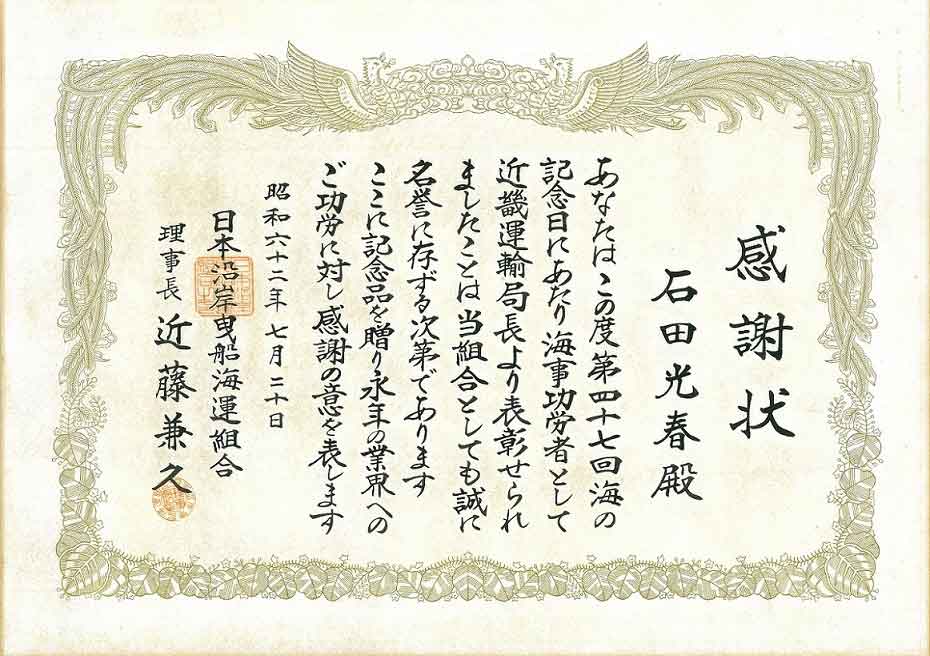 感謝状
石田光春殿
あなたはこの度第四十七回海の
記念日にあたり海事功労者として
近畿運輸局長より表彰せられ
ましたことは当組合としても誠に
名誉に存ずる次第であります
ここに記念品を贈り永年の業界への
ご功労に対し感謝の意を表します
昭和六十二年七月二十日
日本沿岸曳船海運組合
理事長 近藤兼久